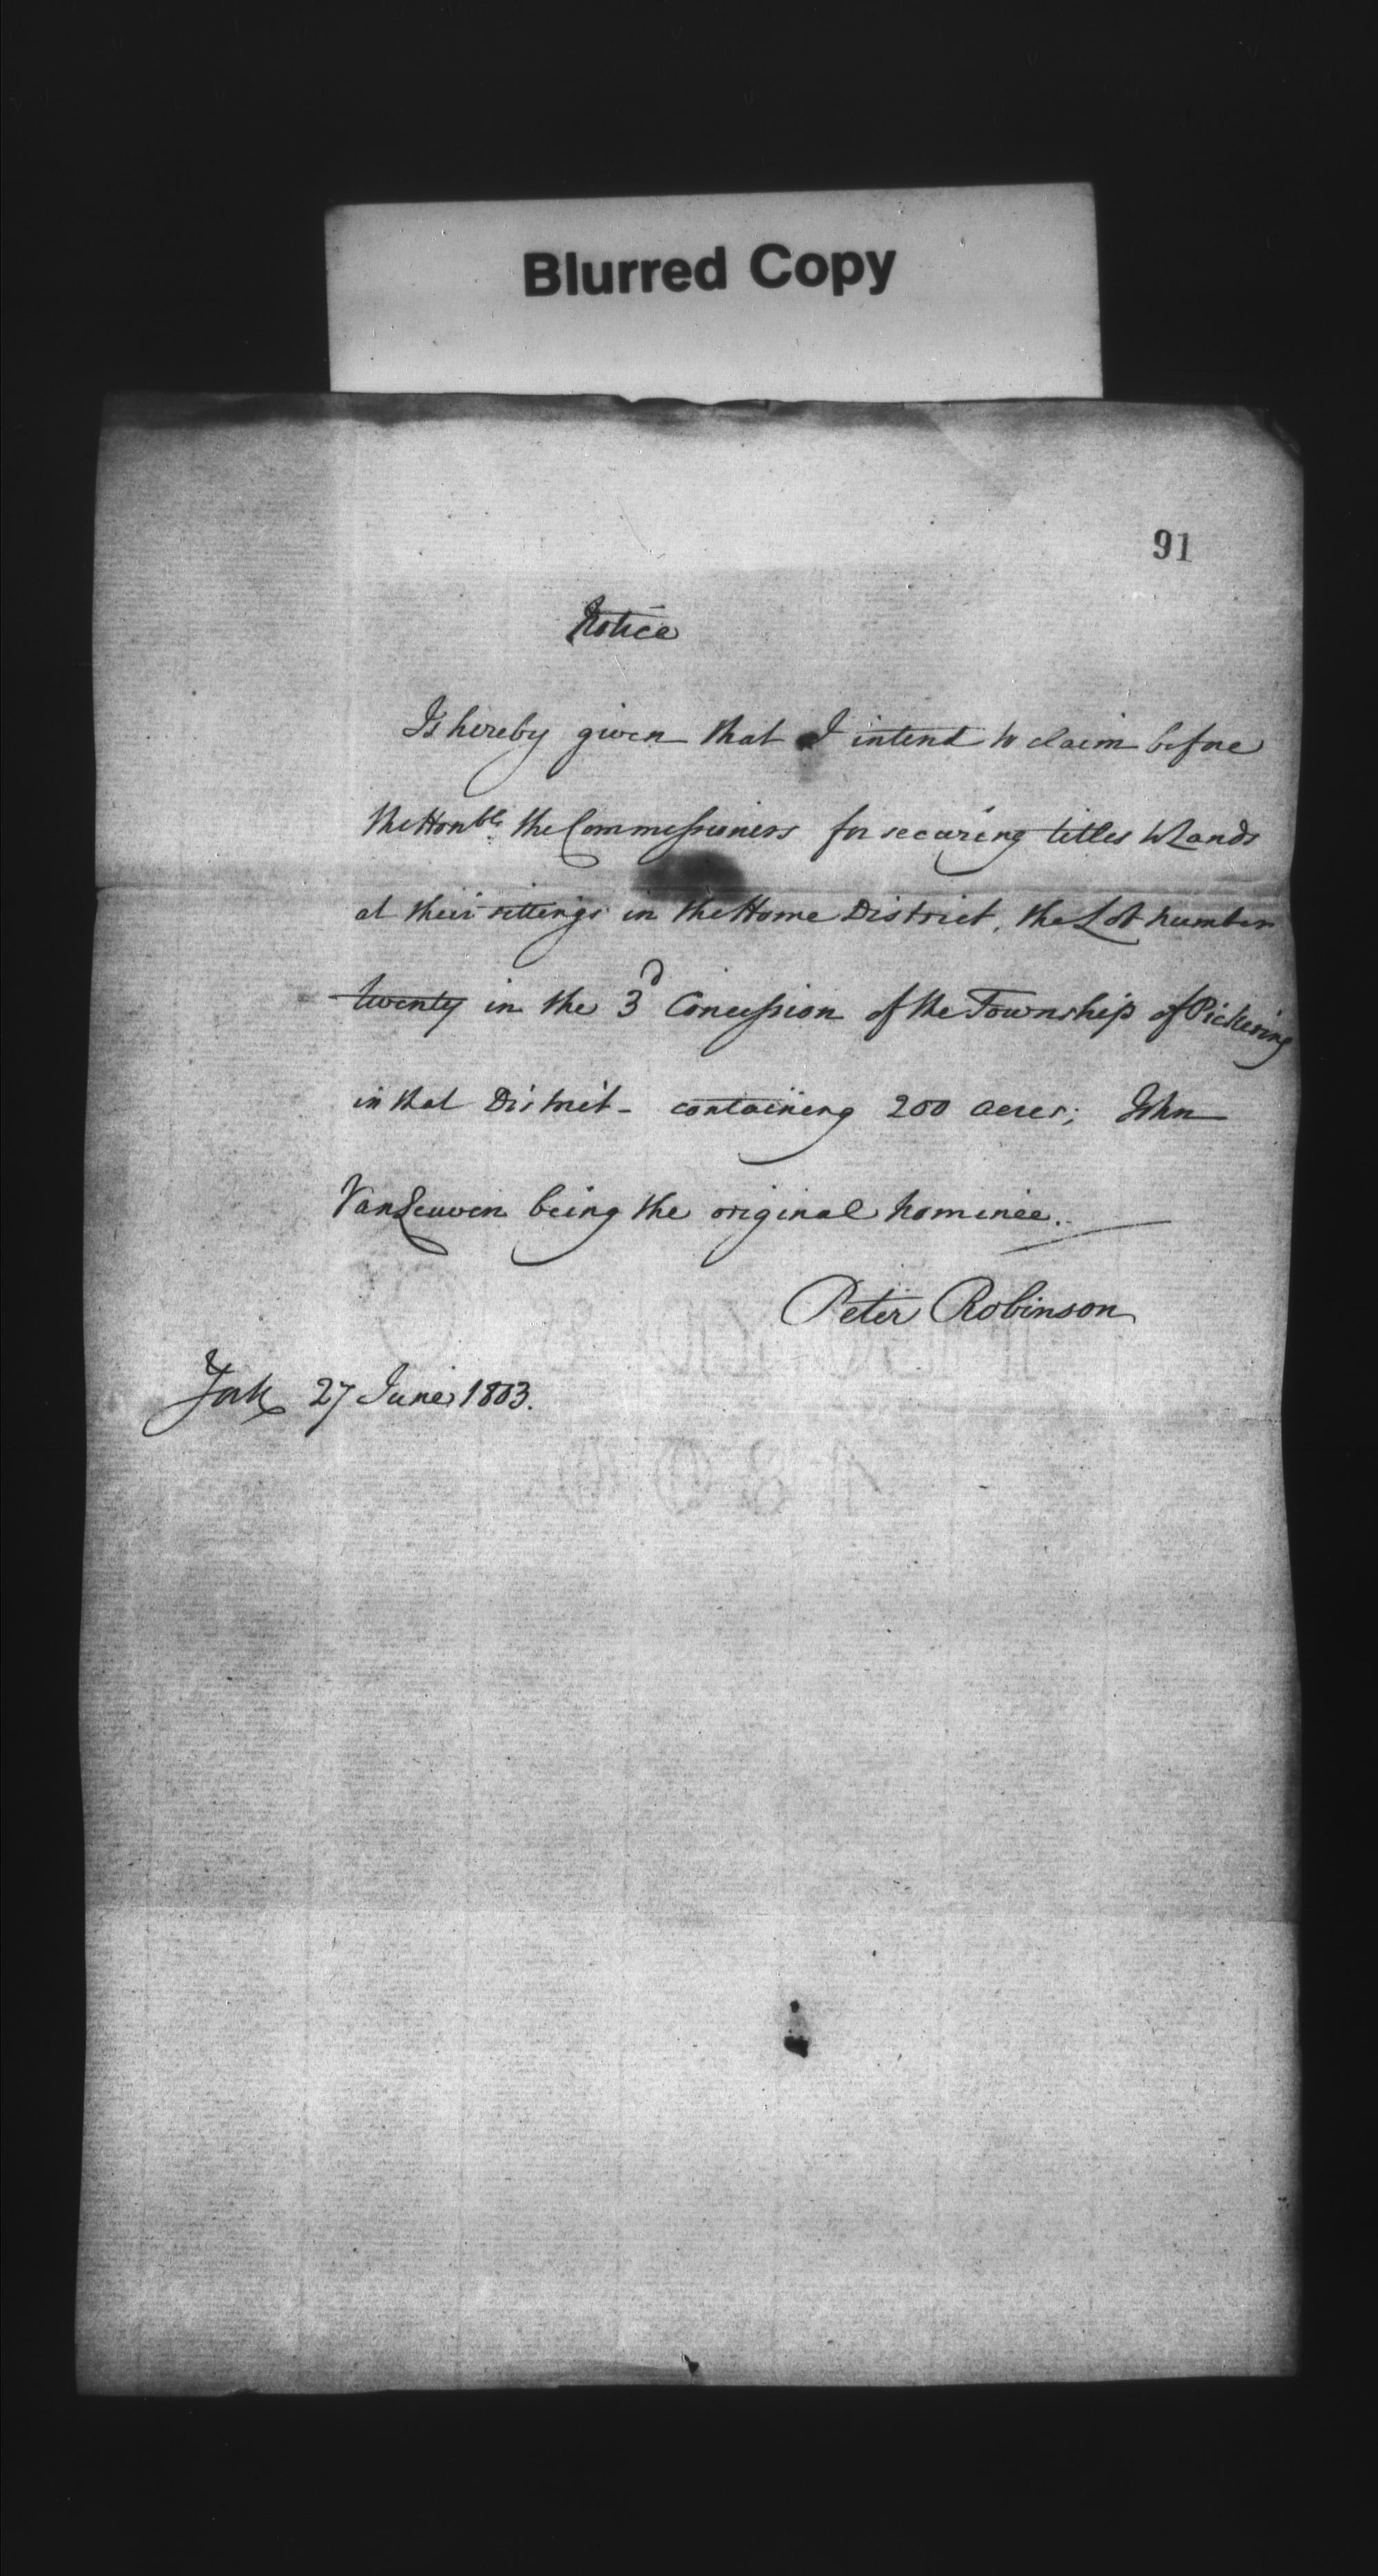 Blurred Copy
91
Notice
Is hereby given that I intend to claim before
the Honble. the Commissioners for securing titles to Lands
at their sittings in the Home District, the Lot number
twenty in the 3d Concession of the Township of Pickering
in that District - containing 200 acres; John
VanLeuven being the original nominee.
Peter Robinson
York 27 June 1803.